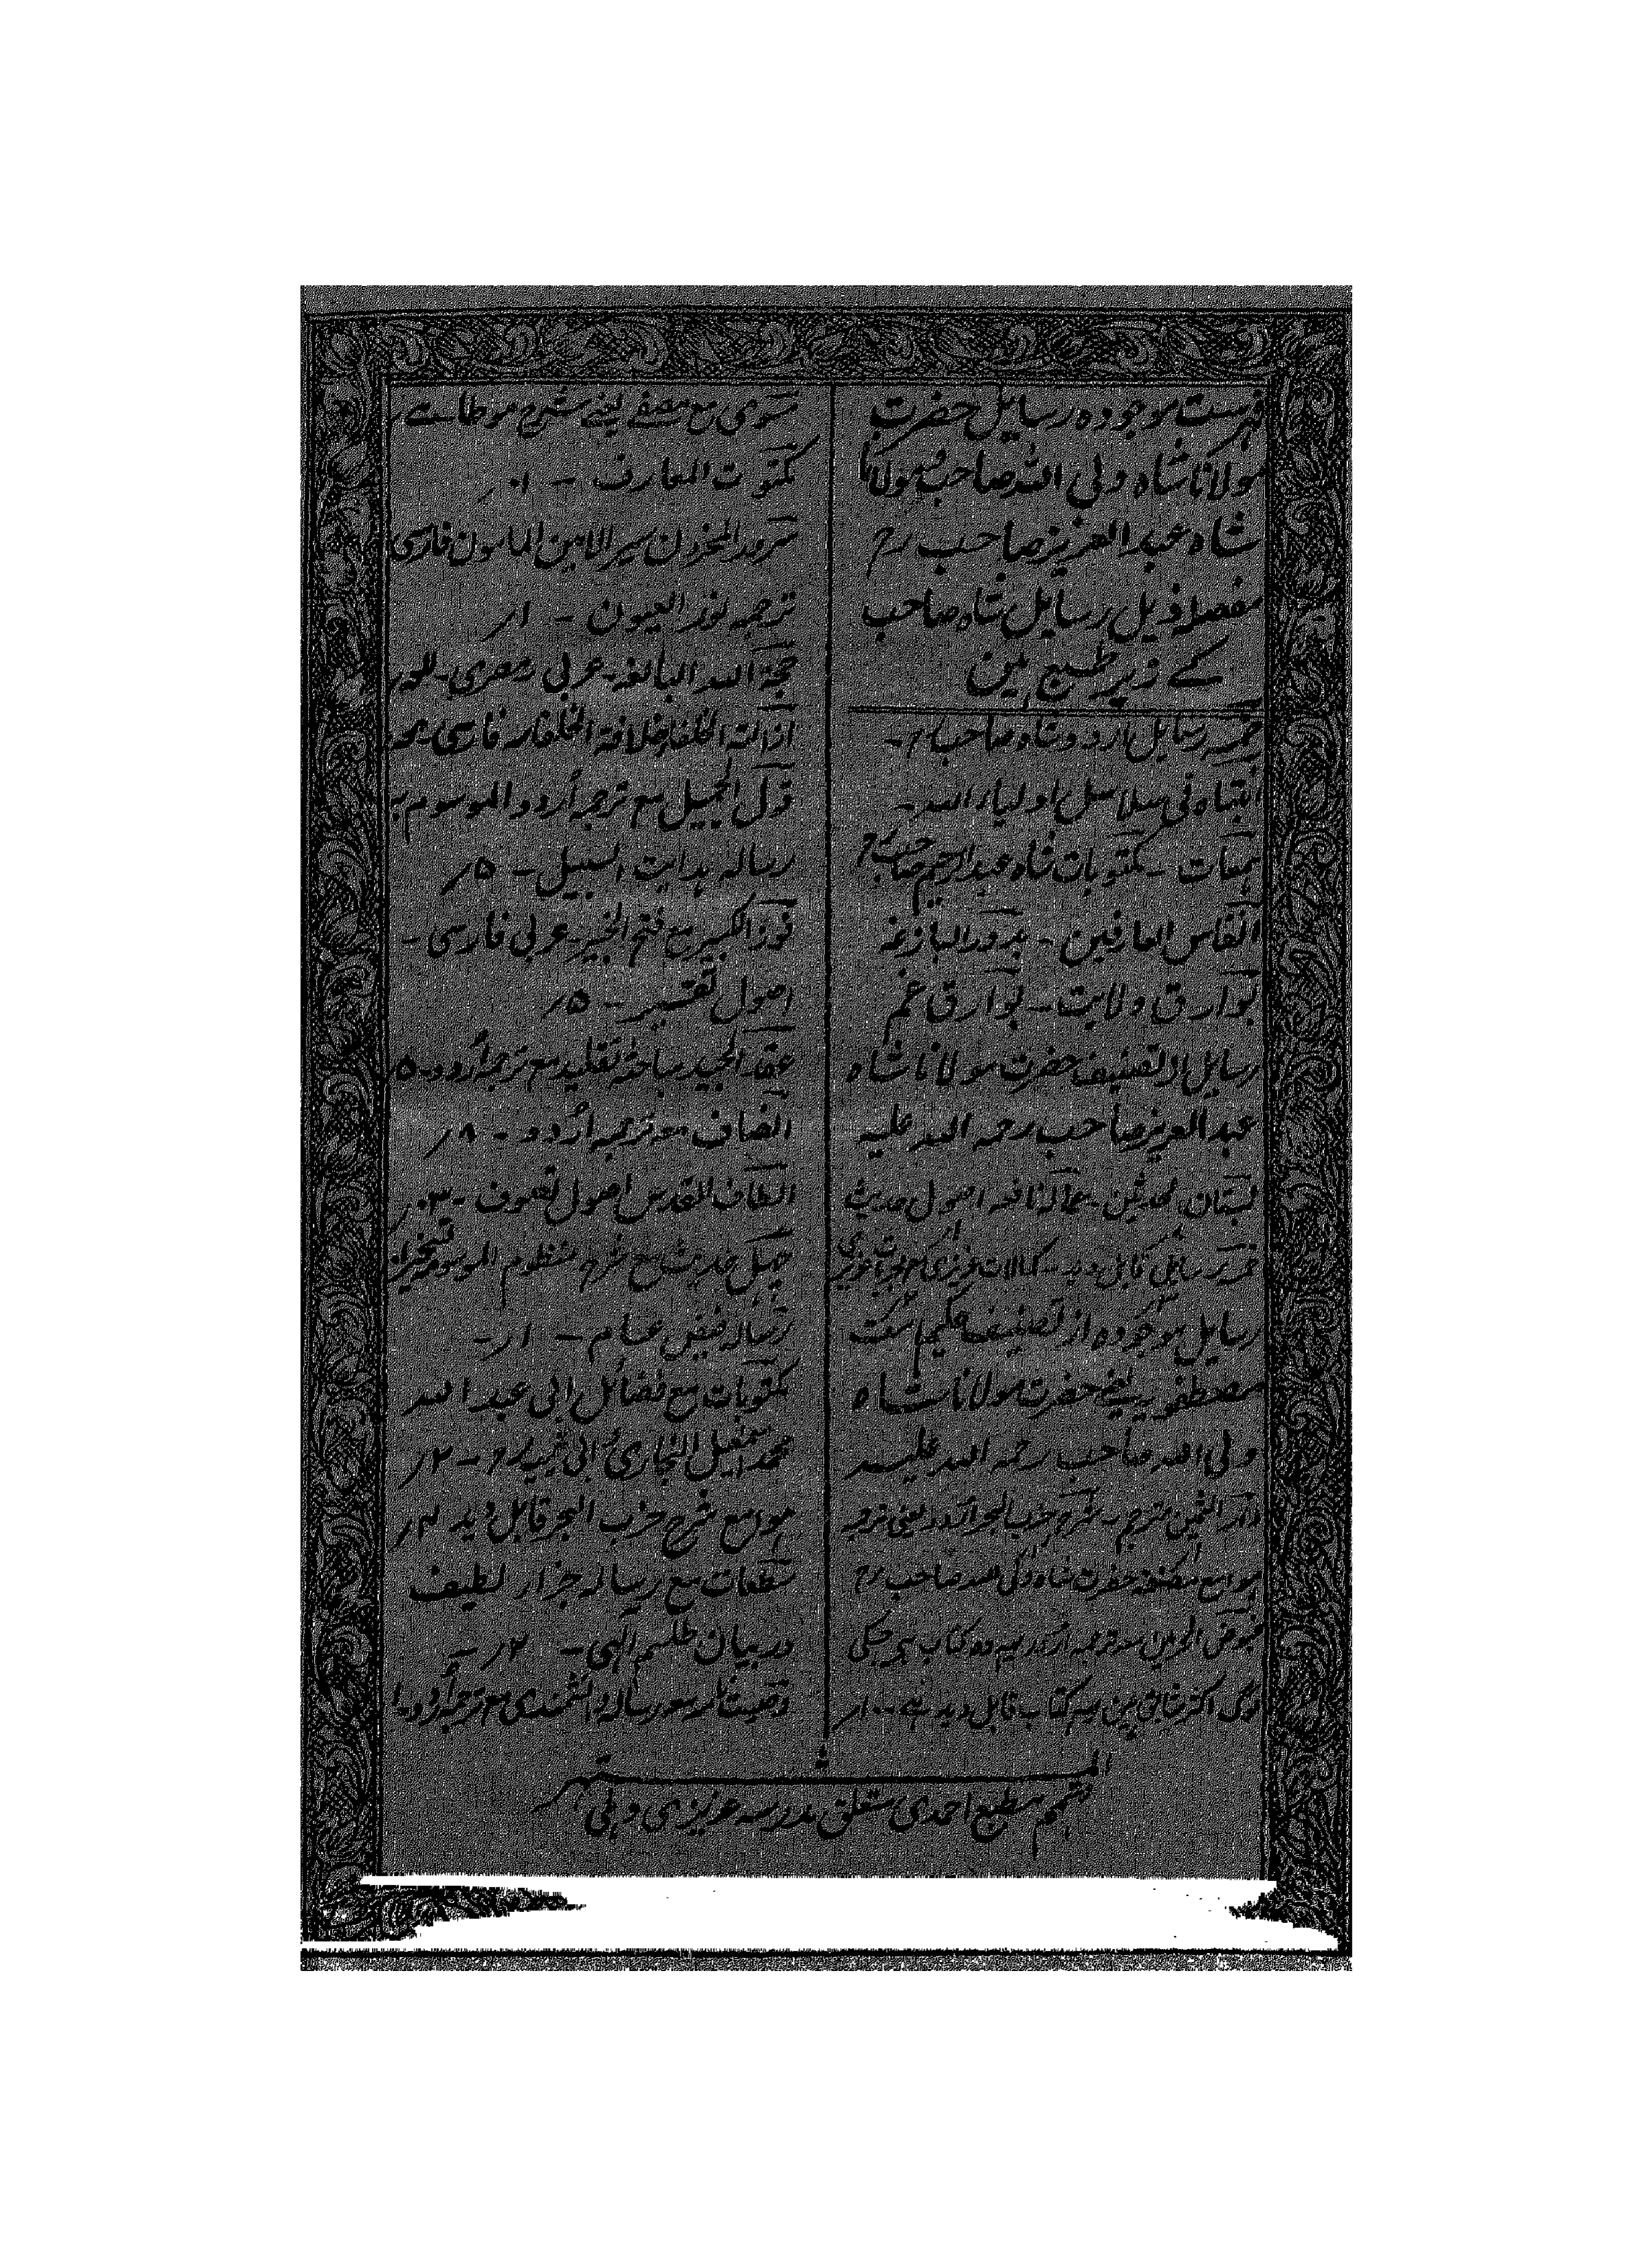 فہرست موجودہ رسایل حضرت
مولانا شاہ ولی اللہ صاحب و مولانا
شاہ عبد العزیز صاحب رح
مفصلہ ذیل رسایل شاہ صاحب
کے زیر طبع ہین
خمسہ رسایل اردو شاہ صاحب رح -
انتباہ فی سلاسل اولیاء اللہ -
ہمعات - مکتوبات شاہ عبد الرحیم صاحب رح
انفاس العارفین - بدور البازغہ
بوارق ولایت - بوارق غم
رسایل از تصنیف حضرت مولانا شاہ
عبد العزیز صاحب رحمہ اللہ علیہ
بستان المحدثین - عجالہ نافعہ اصول حدیث
خمسہ رسایل قابل دید - کمالات عزیزی
رسایل موجودہ از تصنیف حکیم امت
مصطفویہ یعنے حضرت مولانا شاہ
ولی اللہ صاحب رحمہ اللہ علیہ
در الثمین مترجم - شرح حزب البحر اردو یعنی ترجمہ
ہوامع مصنفہ حضرت شاہ ولی اللہ صاحب رح
فیوض الحرمین معہ ترجمہ اردو یہ وہ کتاب ہے جسکی
اکثر شایق ہین یہ کتاب قابل دید ہے - ۱۰ر
مسوی مع مصفے یعنے شرح موطا
مکتوب المعارف - ۱۰ر
سرور المخزون سیر الامین المامون فارسی
ترجمہ نور العیون - ۱ر
حجۃ اللہ البالغہ - عربی مصری -
ازالتہ الخفا خلافۃ الخلفاء فارسی
قول الجمیل مع ترجمہ اُردو الموسوم بہ
رسالہ ہدایت السبیل - ۵ر
فوز الکبیر مع فتح الخبیر عربی فارسی -
اصول تفسیر - ۵ر
عقد الجید مباحثہ تقلید مع ترجمہ اُردو - ۵ر
انصاف معہ ترجمہ اُردو - ۸ر
الطاف القدس اصول تصوف - ۳ر
چہل حدیث مع شرح منظوم الموسوم
رسالہ فیض عام - ۱ر -
مکتوبات مع فضائل ابی عبد اللہ
محمد اسمعیل البخاری - ۲ر
ہوامع شرح حزب البحر قابل دید ۴ر
سطعات مع رسالہ جزء لطیف
در بیان طلسم الٰہی - ۲ر -
وصیت نامہ معہ رسالہ دانشمندی مع ترجمہ اُردو
المشتہر
مہتمم مطبع احمدی متعلق مدرسہ عزیزی دہلی